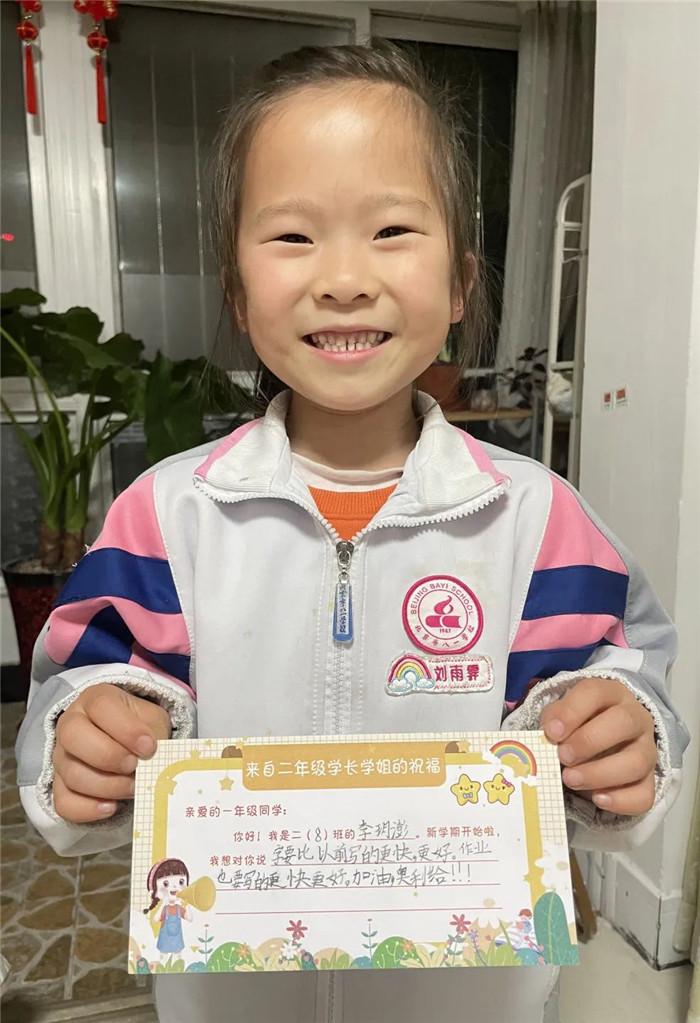 BEIJING BAYI SCHOOL
1947
北京市八一学校
刘雨霏
来自二年级学长学姐的祝福
亲爱的一年级同学:
你好!我是二(8)班的李玥澎。新学期开始啦,
我想对你说 字要比以前写的更快,更好。作业
也要写的更快更好。加油,奥利给!!!